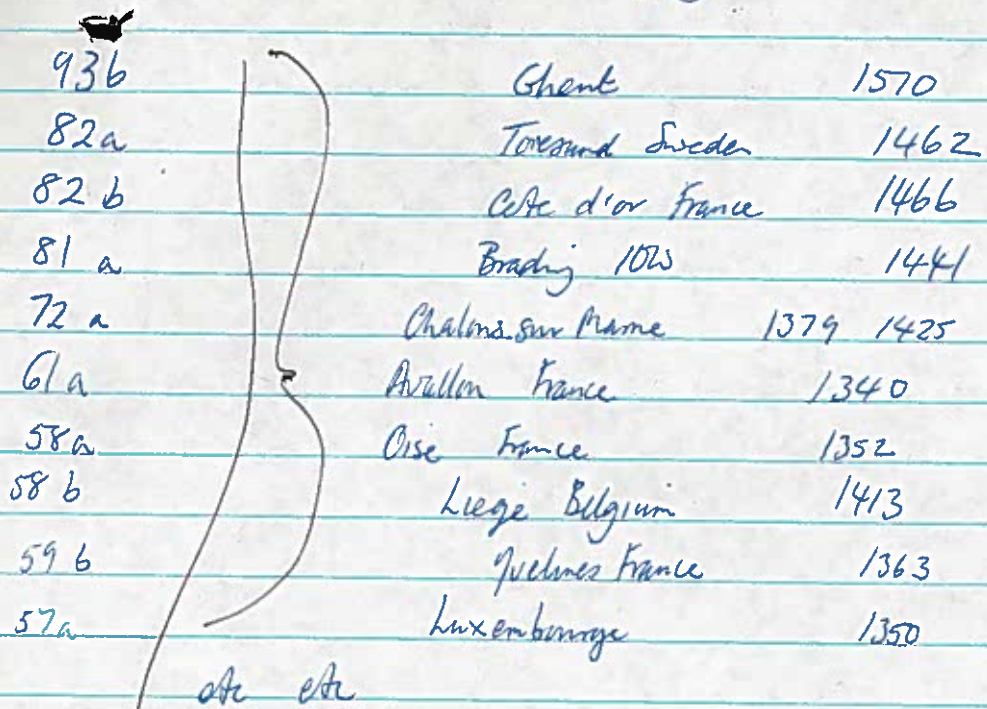 93b Ghent 1570
82a Toresund Sweden 1462
82 b Cote d'or France 1466
81 a Brading IOW 1441
72 a Chalons sur Marne 1379 1425
61 a Avallon France 1340
58a Oise France 1352
58 b Liege Belgium 1413
59 b Yvelines France 1363
57a Luxembourge 1350
etc etc